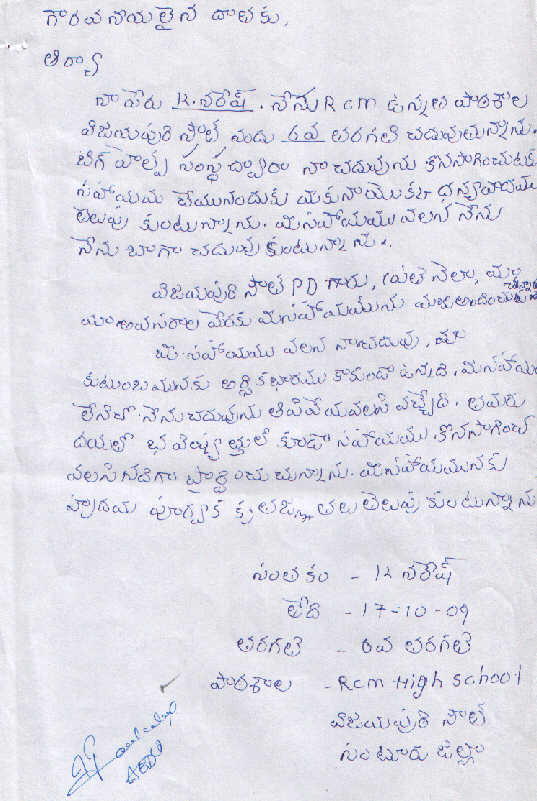 గౌరవనీయులైన దాతకు,
ఆర్యా
నా పేరు K.నరేష్. నేను Rcm ఉన్నత పాఠశాల
విజయపురి సౌత్ నందు 6వ తరగతి చదువుతున్నాను.
బిగ్ హెల్ప్ సంస్థ ద్వారా నా చదువును కొనసాగించుటకు
సహాయము చేయునందుకు మీకు నా యొక్క ధన్యవాదములు
తెలుపు కుంటున్నాను. మీ సహాయము వలన నేను
నేను బాగా చదువు కుంటున్నాను.
విజయపురి సౌత్ PD గారు, ప్రతి నెలా, మా
అవసరాల మేరకు మీ సహాయమును మాకు అందించుచున్నారు
మీ సహాయము వలన నా చదువు, మా
కుటుంబమునకు ఆర్థిక భారము కాకుండా ఉన్నది. మీ సహాయం
లేనిచో నేను చదువును ఆపివేయవలసి వచ్చేది. తమరు
దయతో భవిష్యత్తులో కూడా సహాయము కొనసాగించ
వలసినదిగా ప్రార్థించు చున్నాను. మీ సహాయమునకు
హృదయ పూర్వక కృతజ్ఞతలు తెలుపు కుంటున్నాను
సంతకం - K నరేష్
తేది - 17-10-09
తరగతి - 6వ తరగతి
పాఠశాల - Rcm High school
విజయపురి సౌత్
గుంటూరు జిల్లా